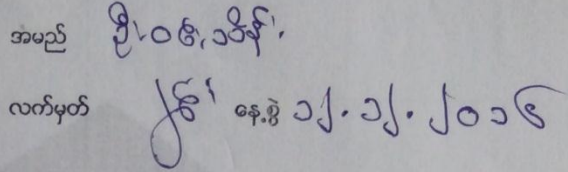 အမည် ဦးဝင်းသိန်း
လက်မှတ် နေ့စွဲ ၁၂.၁၂.၂၀၁၆